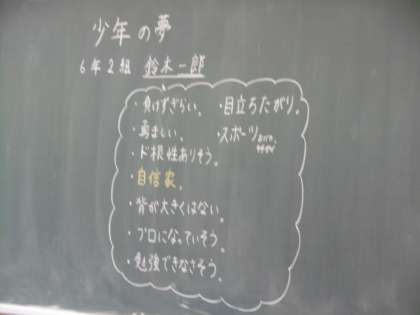 少年の夢
6年2組 鈴木一郎
・負けずぎらい。
・勇ましい。
・ド根性ありそう。
・自信家。
・背が大きくはない。
・プロになっていそう。
・勉強できなさそう。
・目立ちたがり。
・スポーツ